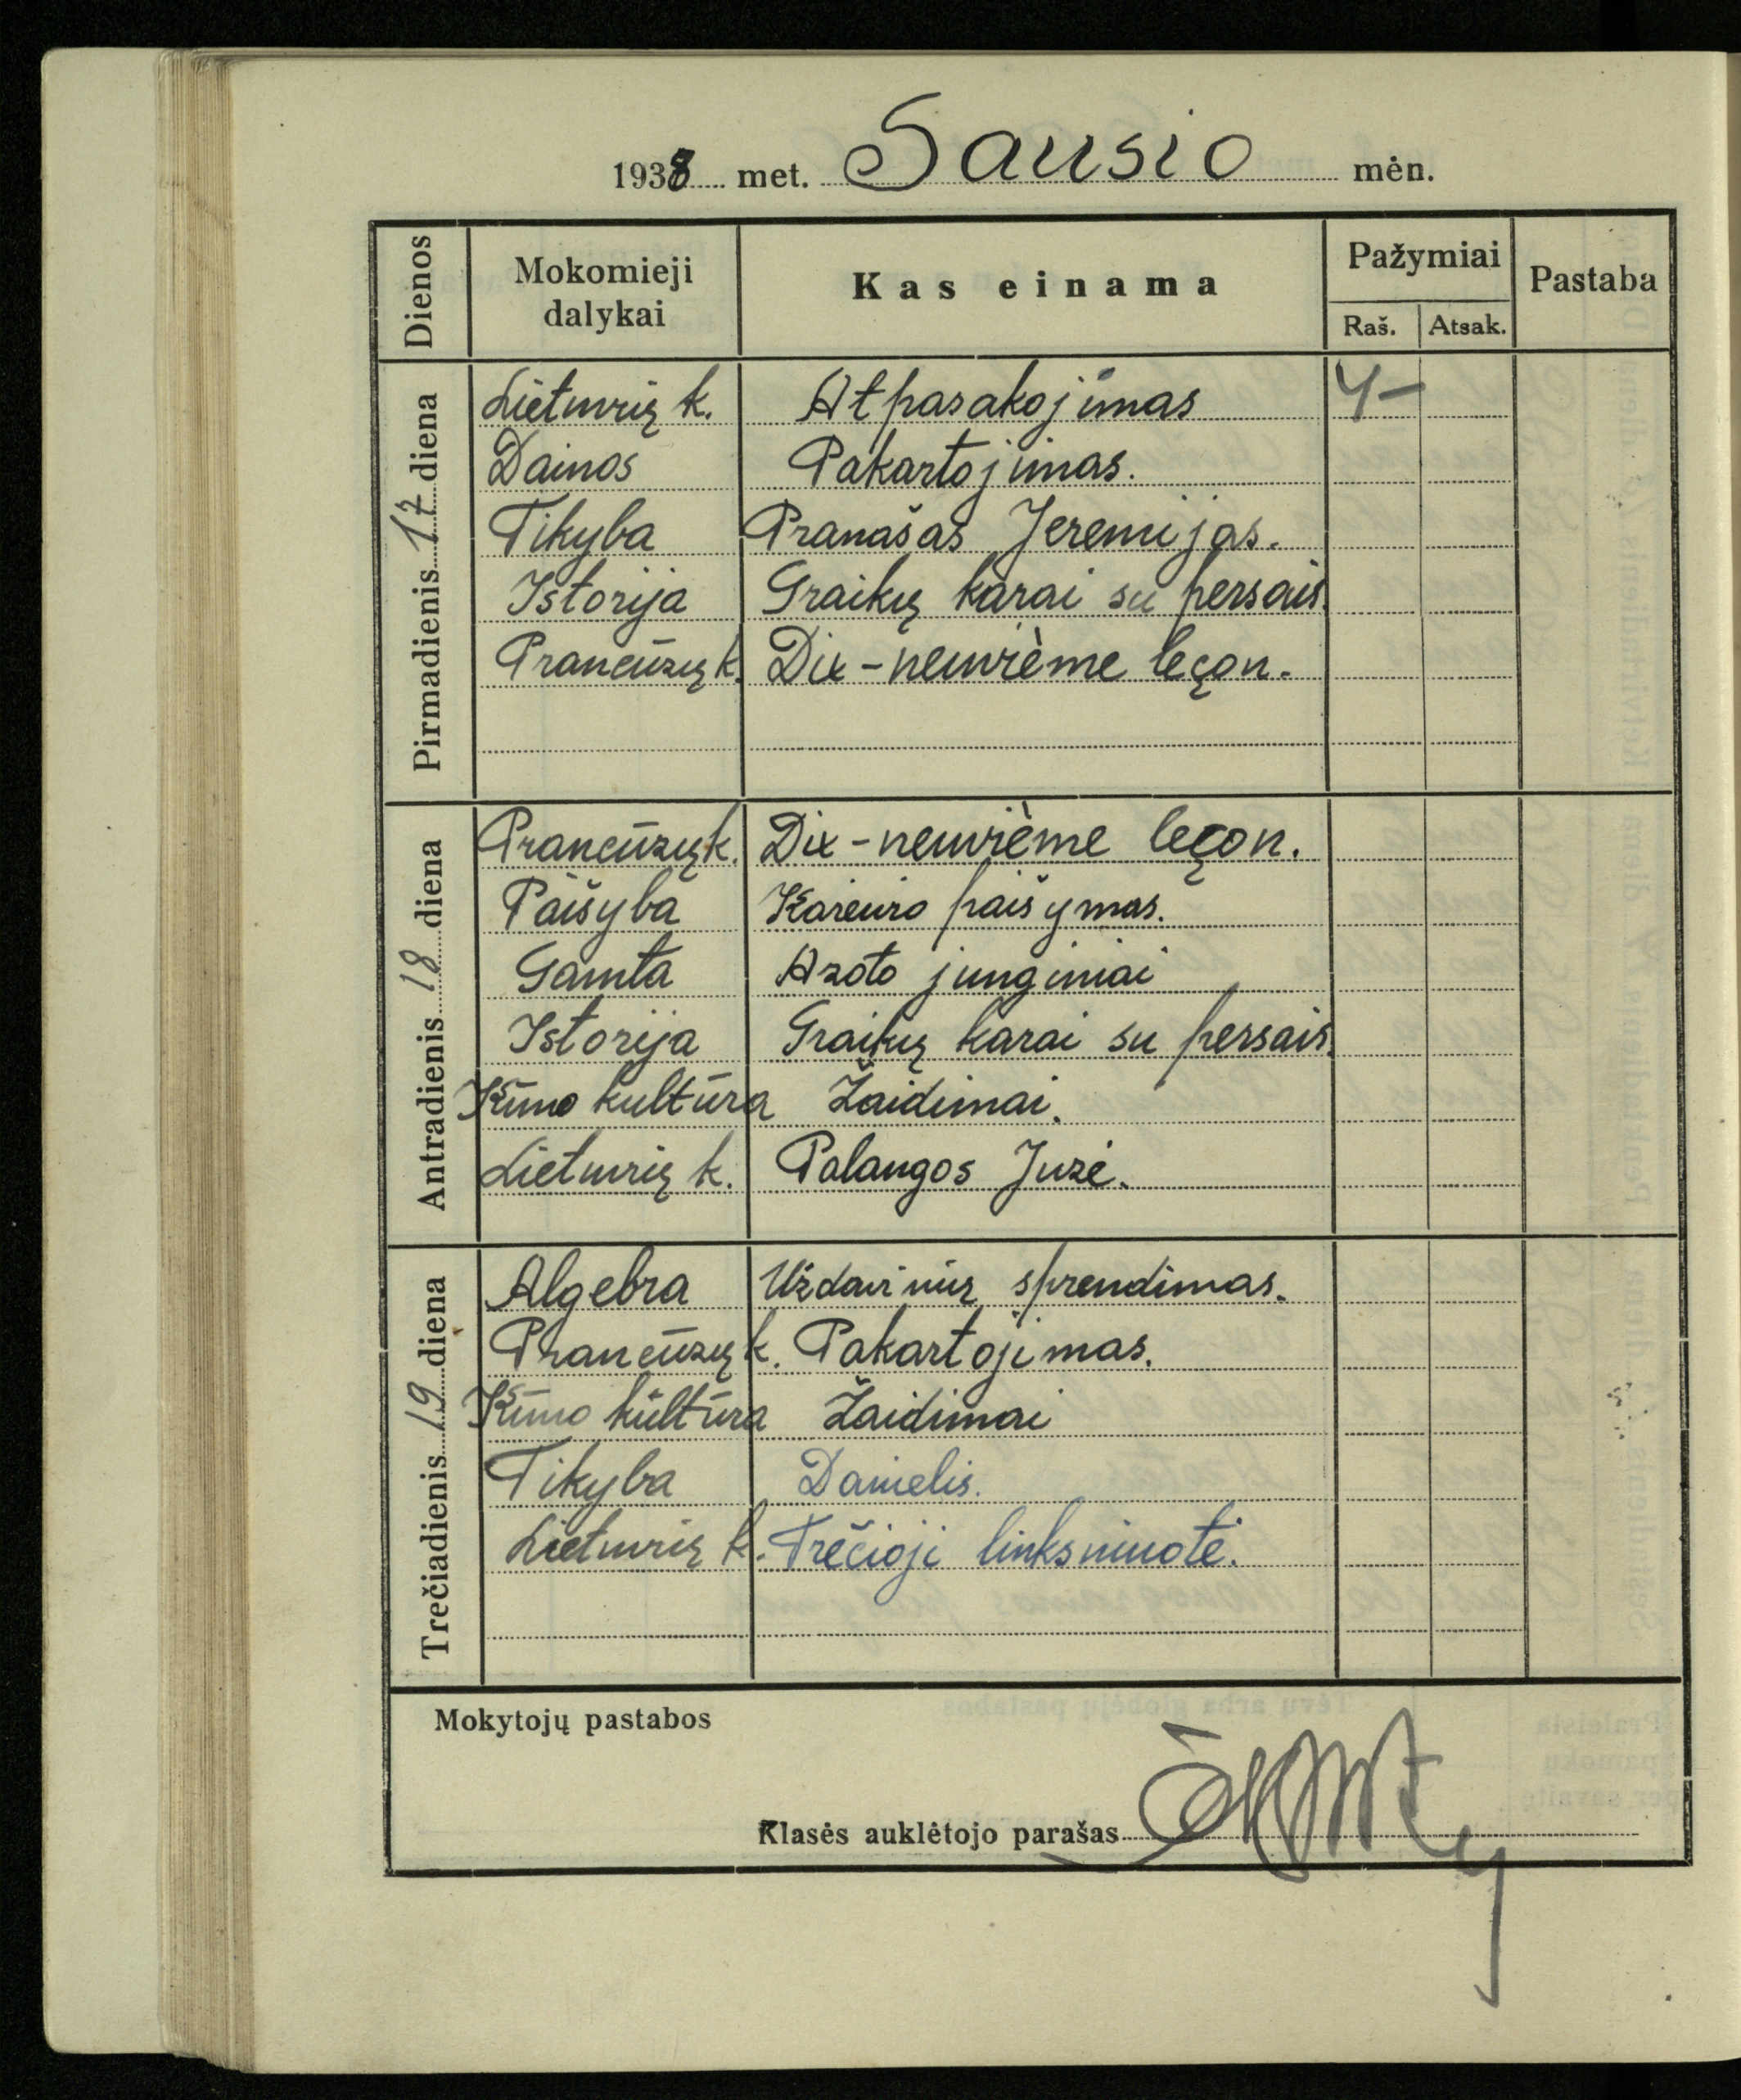 1938 met. Sausio mėn.
Dienos Mokomieji dalykai Kas einama Pažymiai Pastaba
Raš. Atsak.
Pirmadienis 17 diena
Lietuvių k. Atpasakojimas 4-
Dainos Pakartojimas.
Tikyba Pranašas Jeremijas.
Istorija Graikų karai su persais.
Prancūzų k. Dix-neuvième leçon.
Antradienis 18 diena
Prancūzų k. Dix-neuvième leçon.
Paišyba Kareivio paišymas.
Gamta Azoto junginiai
Istorija Graikų karai su persais.
Kūno kultūra Žaidimai.
Lietuvių k. Palangos Juzė.
Trečiadienis 19 diena
Algebra Uždavinių sprendimas.
Prancūzų k. Pakartojimas.
Kūno kultūra Žaidimai
Tikyba Danielis.
Lietuvių k. Trečioji linksniuotė.
Mokytojų pastabos
Klasės auklėtojo parašas